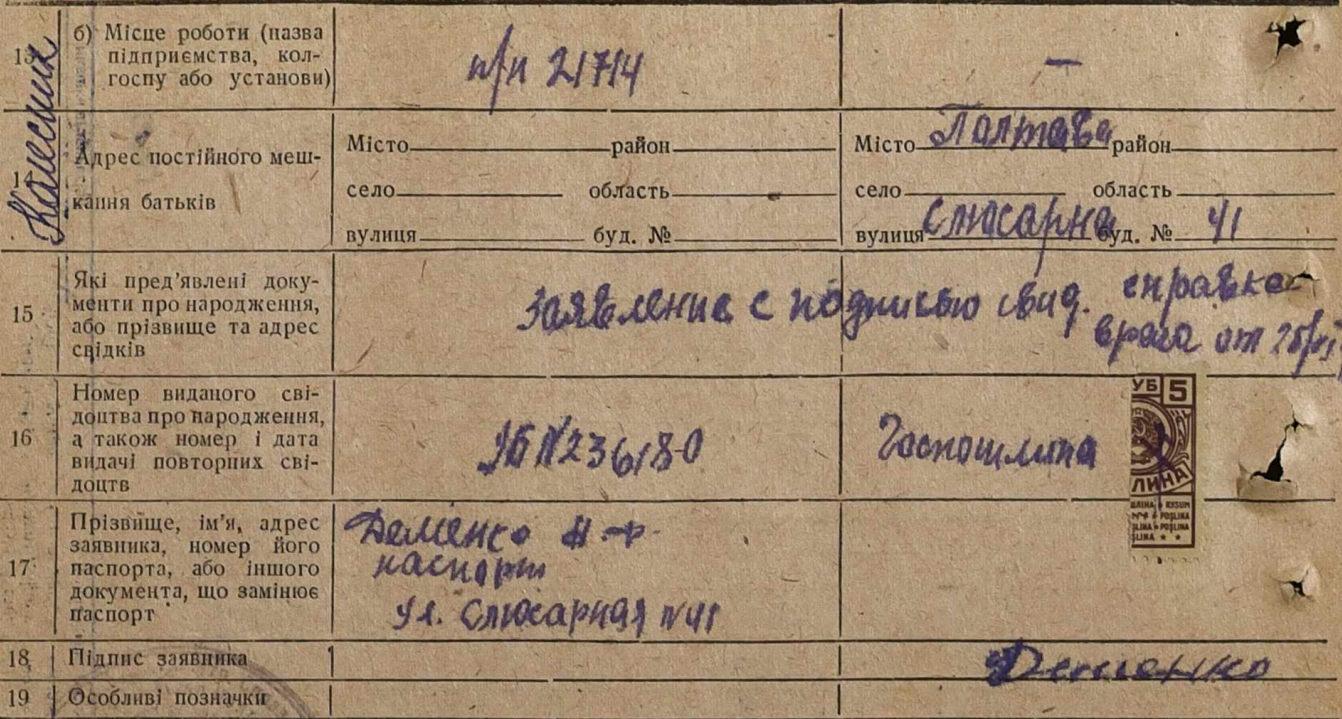 Колесник
13
б) Місце роботи (назва
підприємства, кол-
госпу або установи)
п/п 21714
—
14
Адрес постійного меш-
кання батьків
Місто район
село область
вулиця буд. №
Місто Полтава район
село область
вулиця Слюсарна буд. № 41
15
Які пред’явлені доку-
менти про народження,
або прізвище та адрес
свідків
Заявление с подписью свид. справка
врача от
16
Номер виданого сві-
доцтва про народження,
а також номер і дата
видачі повторних сві-
доцтв
N236180
Госпошлина
УБ 5
ЛИНА
17
Прізвище, ім’я, адрес
заявника, номер його
паспорта, або іншого
документа, що замінює
паспорт
Деменко Н. Ф.
паспорт
ул. Слюсарная N 41
18
Підпис заявника
Деменко
19
Особливі позначки